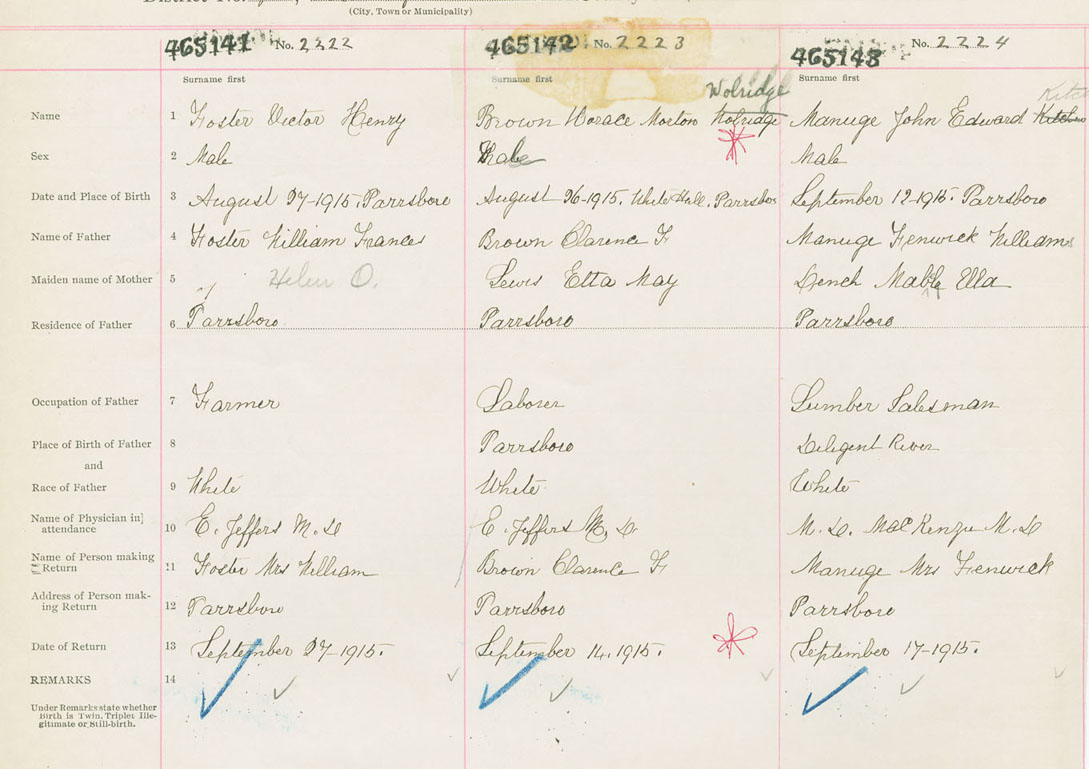 District No.
(City, Town or Municipality)
465141 No. 2222 465142 No. 2223 465143 No. 2224
Surname first Surname first Surname first
Wolridge
Name 1 Foster Victor Henry Brown Horace Morton Wolridge Manuge John Edward
Sex 2 Male Male Male
Date and Place of Birth 3 August 27-1915. Parrsboro August 26-1915. White Hall. Parrsboro September 12-1915. Parrsboro
Name of Father 4 Foster William Frances Brown Clarence F Manuge Fenwick Williams
Maiden name of Mother 5 Helen O. Lewis Etta May Lench Mable Ella
Residence of Father 6 Parrsboro Parrsboro Parrsboro
Occupation of Father 7 Farmer Laborer Lumber Salesman
Place of Birth of Father 8 Parrsboro Diligent River
and
Race of Father 9 White White White
Name of Physician in] attendance 10 E. Jeffers M.D E. Jeffers M.D. M. D. MacKenzie M.D
Name of Person making Return 11 Foster Mrs William Brown Clarence F Manuge Mrs Fenwick
Address of Person making Return 12 Parrsboro Parrsboro Parrsboro
Date of Return 13 September 27-1915. September 14. 1915. September 17-1915.
REMARKS 14
Under Remarks state whether
Birth is Twin. Triplet Ille-
gitimate or Still-birth.